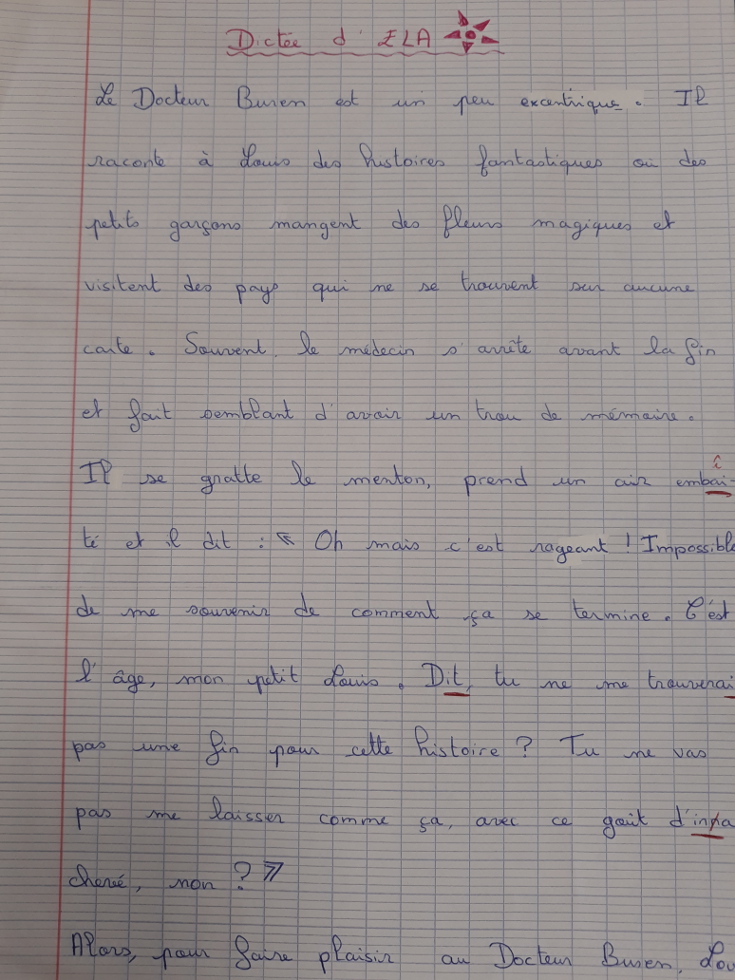 Dictée d'ELA
Le Docteur Buren est un peu excentrique. Il
raconte à Louis des histoires fantastiques où des
petits garçons mangent des fleurs magiques et
visitent des pays qui ne se trouvent sur aucune
carte. Souvent, le médecin s'arrête avant la fin
et fait semblant d'avoir un trou de mémoire.
Il se gratte le menton, prend un air embai-
té et il dit : « Oh mais c'est rageant ! Impossible
de me souvenir de comment ça se termine. C'est
l'âge, mon petit Louis. Dit, tu ne me trouverai
pas une fin pour cette histoire ? Tu ne vas
pas me laisser comme ça, avec ce goût
chevé, non ? »
Alors, pour faire plaisir au Docteur Buren, Lou